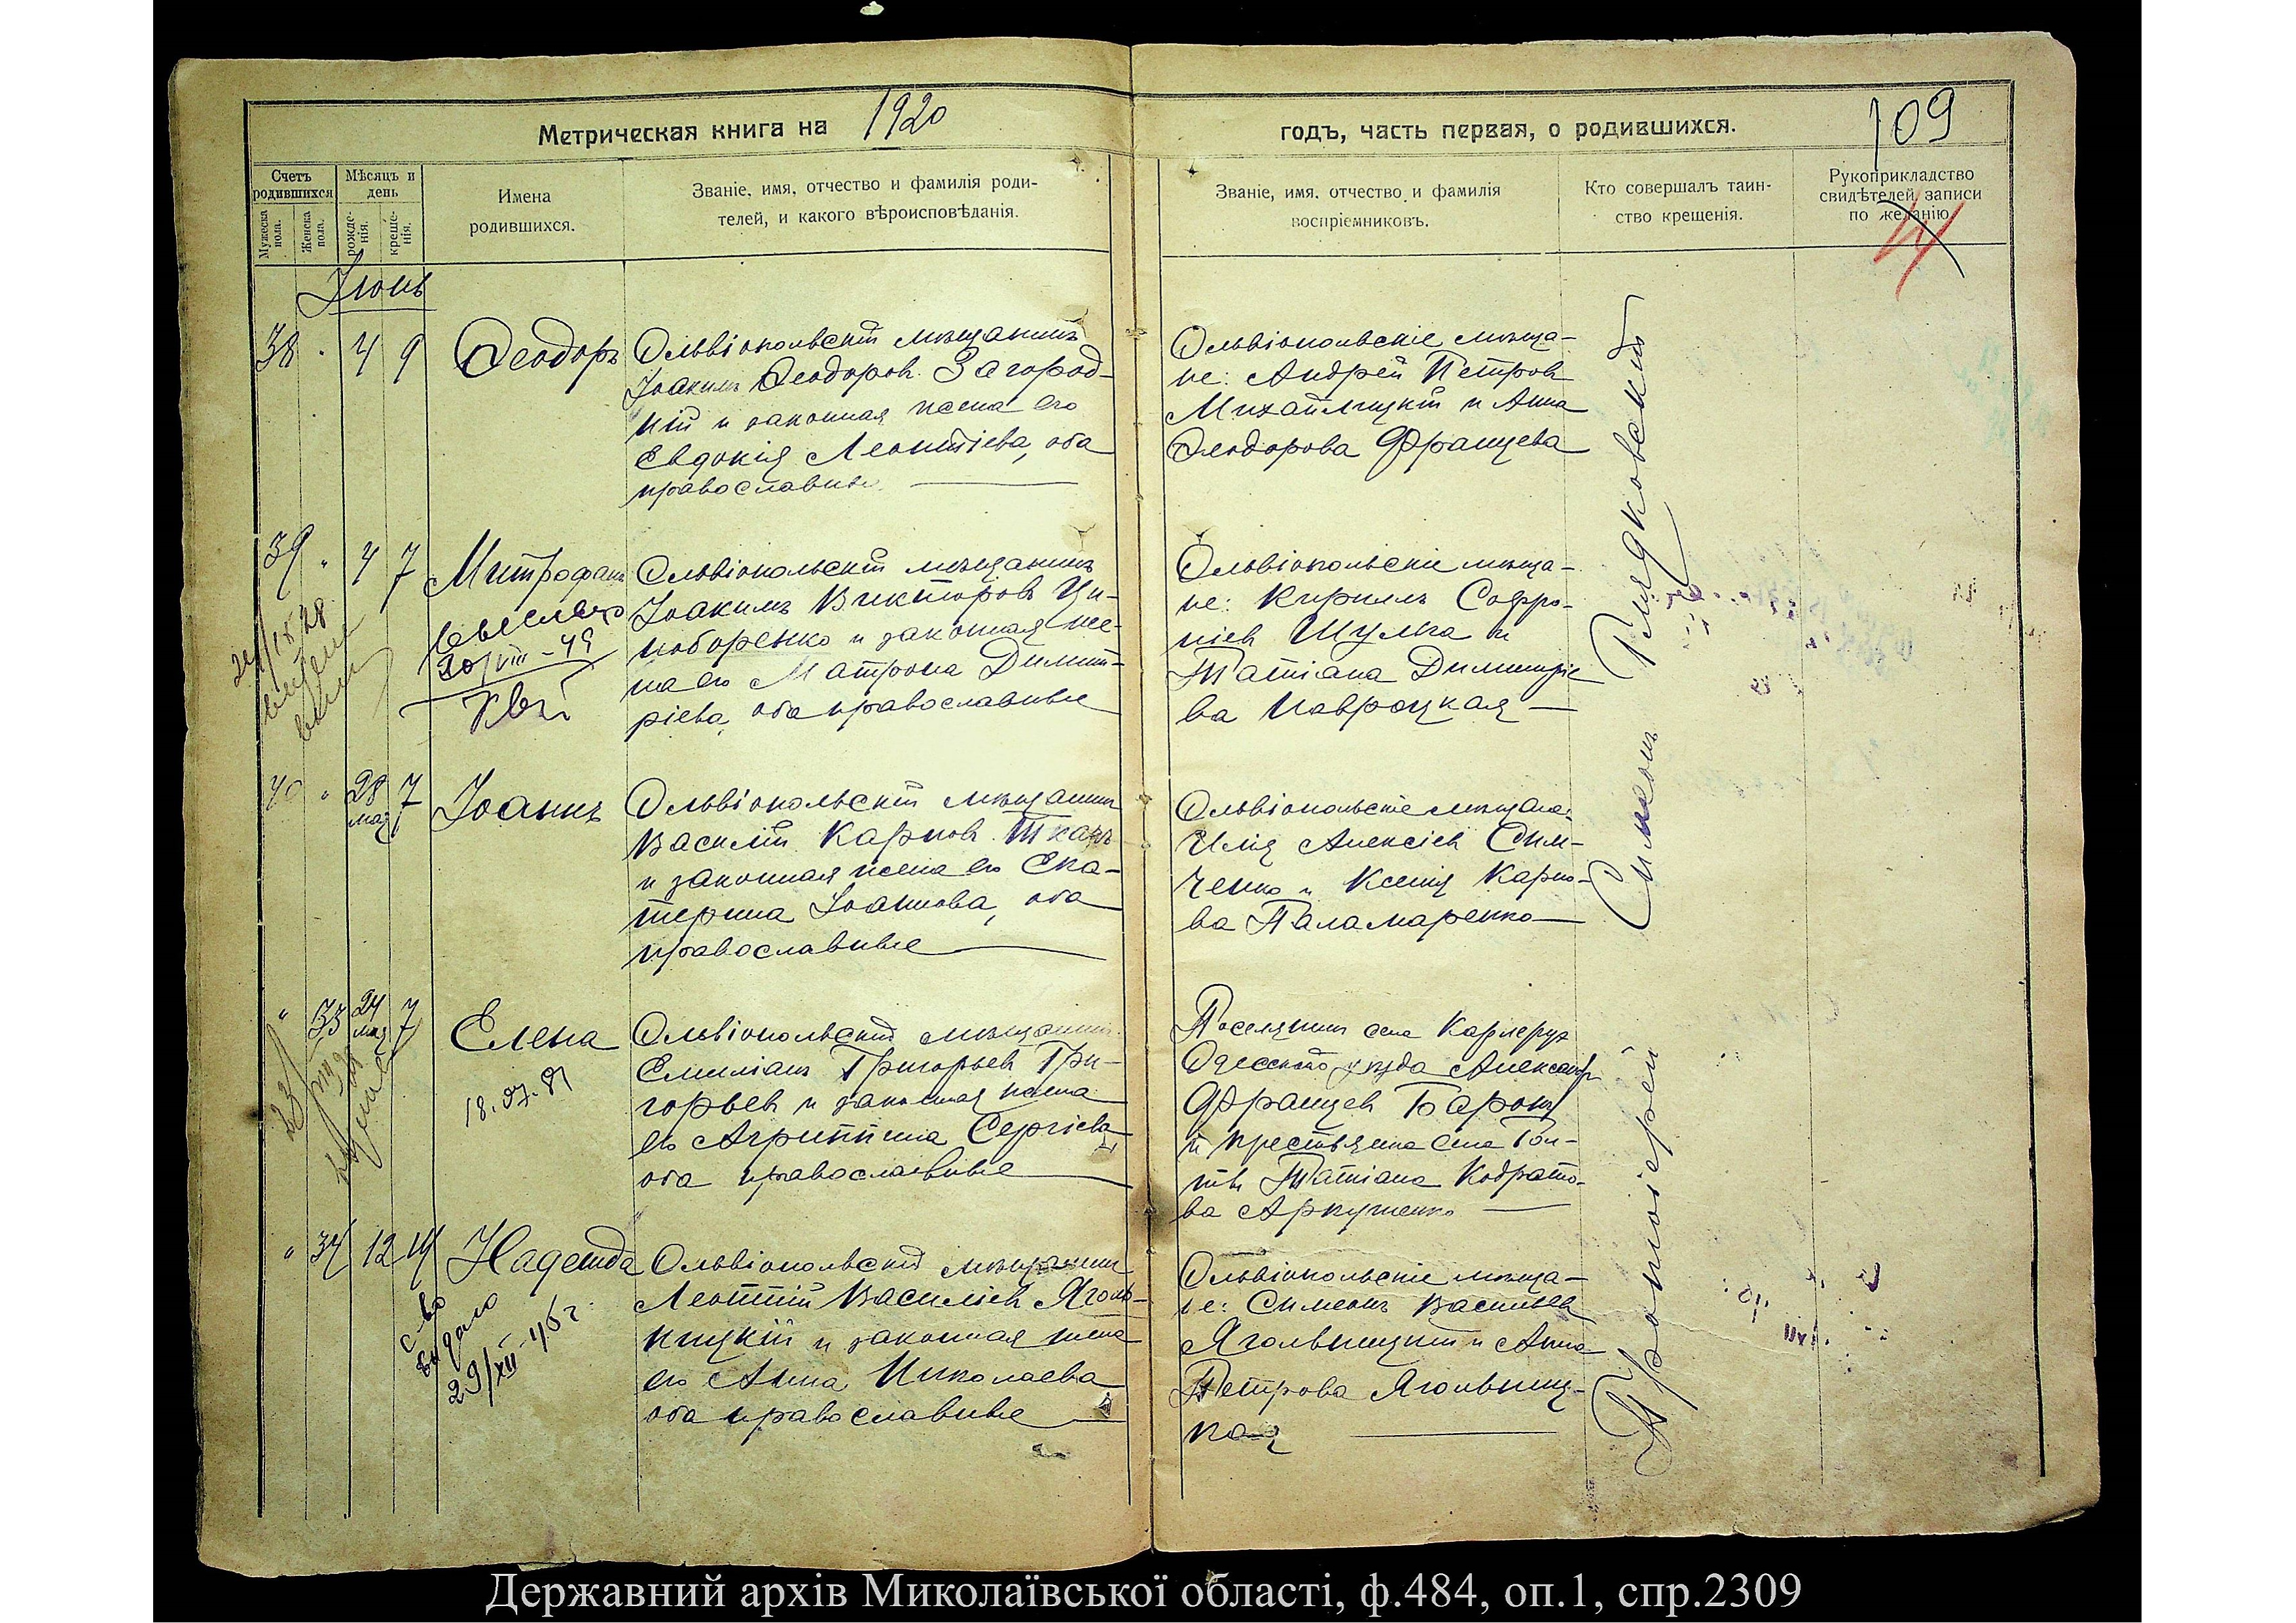 Метрическая книга на 1920
годъ, часть первая, о родившихся.
109
Счетъ родившихся
Мужеска пола.
Женска пола.
Мѣсяцъ и день
рожде-нія.
креще-нія.
Имена
родившихся.
Званіе, имя, отчество и фамилія роди-
телей, и какого вѣроисповѣданія.
Званіе, имя, отчество и фамилія
воспріемниковъ.
Кто совершалъ таин-
ство крещенія.
Рукоприкладство
свидѣтелей записи
по желанію
Іюнь
38 4 9 Ѳеодоръ
Ольвіопольскій мѣщанинъ
Іоакимъ Ѳеодоровъ Загород-
ній и законная жена его
Евдокія Леонтіева, оба
православные
Ольвіопольскіе мѣща-
не: Андрей Петровъ
Михайлицкій и Анна
Ѳеодорова Францева
39 " 4 7 Митрофанъ
20/VIII-49
Ольвіопольскій мѣщанинъ
Іоакимъ Викторовъ Ци-
боренко и законная же-
на его Матрона Димит-
ріева, оба православные
Ольвіопольскіе мѣща-
не: Кириллъ Софро-
ніевъ Шулга и
Татіана Димитріе
ва Навроцкая
40 " 28 мая 7 Іоаннъ
Ольвіопольскій мѣщанинъ
Василій Карповъ Ткачъ
и законная жена его Ека-
терина Іоаннова, оба
православные
Ольвіопольскіе мѣщане:
Илія Алексіевъ Сим-
ченко и Ксенія Карпо-
ва Паламаренко
" 33 24 мая 7 Елена
18.07.81
Ольвіопольскій мѣщанинъ
Емиліанъ Григорьевъ Гри-
горьевъ и законная жена
его Агриппина Сергіева
оба православные
Поселянинъ села Карлсруэ
Одесскаго уѣзда Александръ
Францевъ Баронъ
и крестьянка села
Татіана Кодрато-
ва
" 34 12 14 Надежда
с-во
выдано
29/XII-45г.
Ольвіопольскій мѣщанинъ
Леонтій Василіевъ Яголь-
ницкій и законная жена
его Анна Николаева
оба православные
Ольвіопольскіе мѣща-
не: Симеонъ Васильевъ
Ягольницкій и Анна
Петрова Ягольниц-
кая
Протоіерей Симеонъ
Державний архів Миколаївської області, ф.484, оп.1, спр.2309